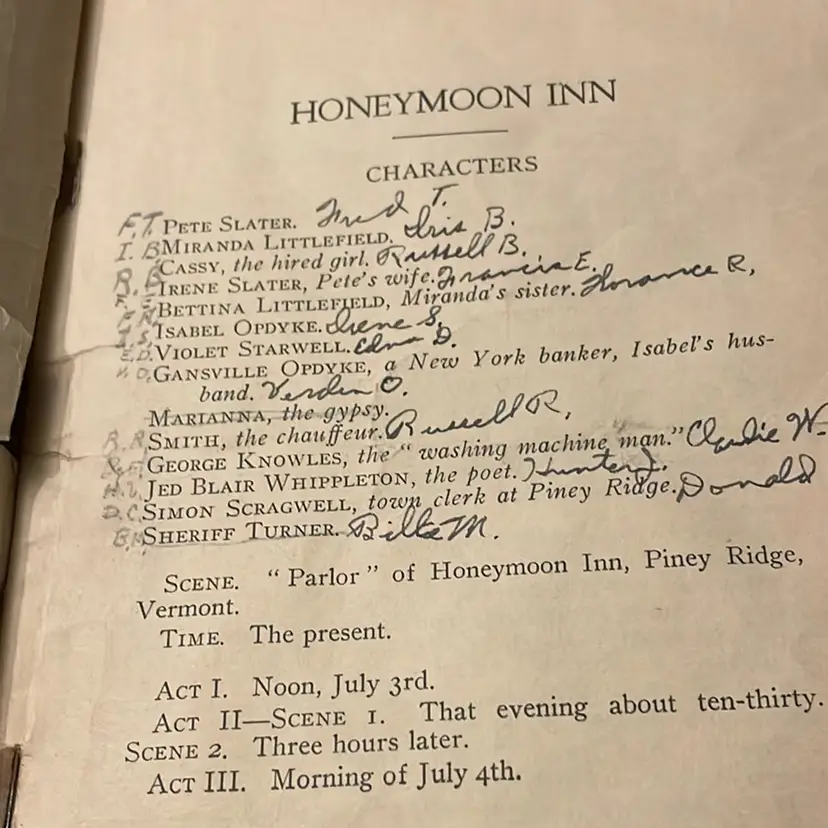 HONEYMOON INN
CHARACTERS
F.T. PETE SLATER. Fred T.
I. B MIRANDA LITTLEFIELD. Iris B.
R. B CASSY, the hired girl. Russell B.
F. E IRENE SLATER, Pete's wife. Francis E.
BETTINA LITTLEFIELD, Miranda's sister. Florance R,
I.S ISABEL OPDYKE. Irene S,
E.D. VIOLET STARWELL. Edna D.
GANSVILLE OPDYKE, a New York banker, Isabel's hus-
band. Verdin O.
MARIANNA, the gypsy.
R.R SMITH, the chauffeur. Russell R,
GEORGE KNOWLES, the "washing machine man." Claudie W-
JED BLAIR WHIPPLETON, the poet. Hunter J.
D.C SIMON SCRAGWELL, town clerk at Piney Ridge. Donald
B.M SHERIFF TURNER. Bille M.
SCENE. "Parlor" of Honeymoon Inn, Piney Ridge,
Vermont.
TIME. The present.
ACT I. Noon, July 3rd.
ACT II—SCENE 1. That evening about ten-thirty.
SCENE 2. Three hours later.
ACT III. Morning of July 4th.